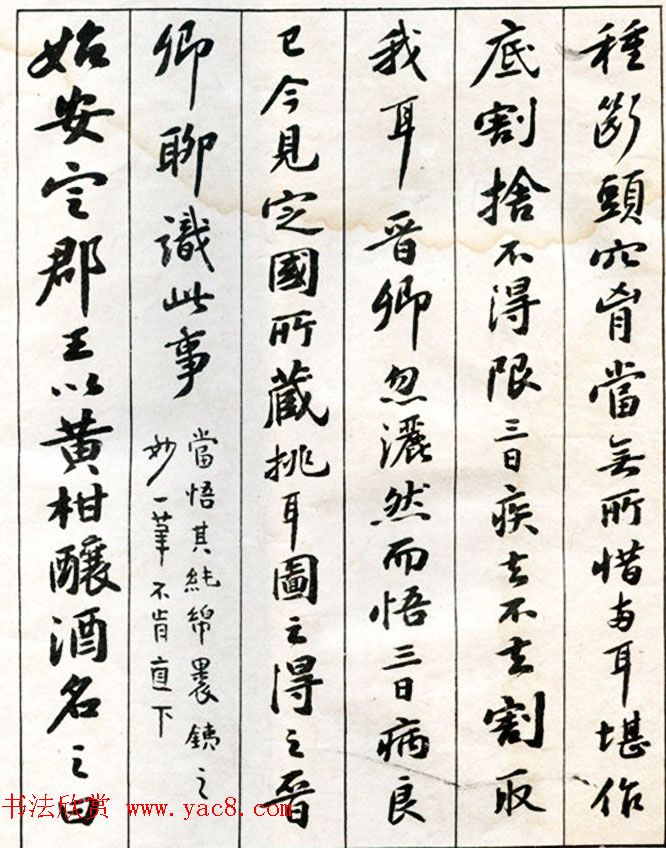 種斷頭穴胷當無所惜与耳堪作
底割捨不得限三日疾去不去割取
我耳晉卿忽灑然而悟三日病良
已今見定國所藏挑耳圖云得之晉
卿聊識此事
當悟其純綿裹鐵之
妙一筆不肯直下
始安定郡王以黃柑釀酒名之曰
书法欣赏 www.yac8.com